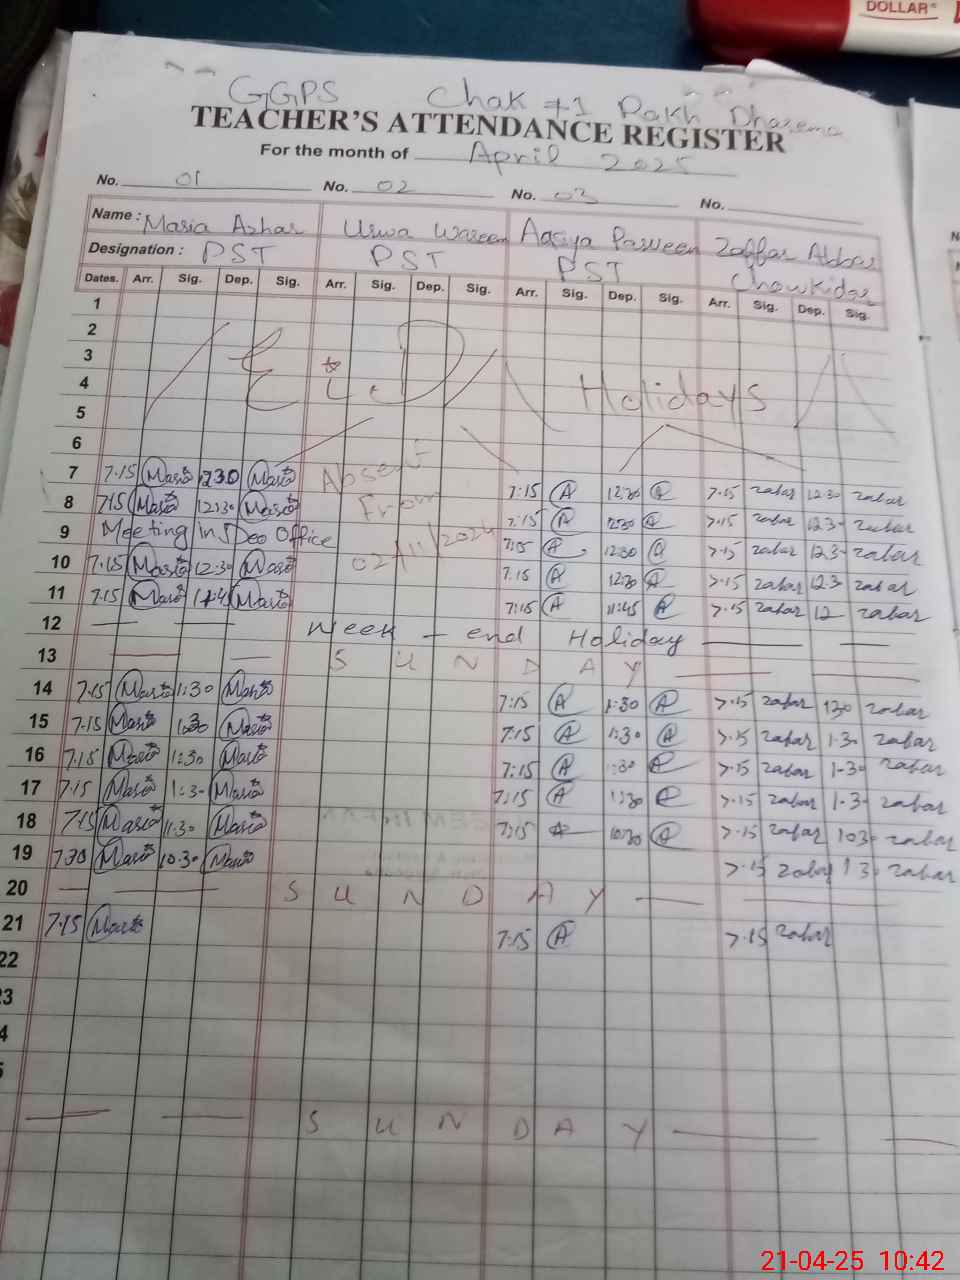 DOLLAR
GGPS Chak #1 Rakh Dharema
TEACHER'S ATTENDANCE REGISTER
For the month of April 2025
No. 01 No. 02 No. 03 No.
Name : Maria Azhar Uswa Waseem Aasiya Parveen Zaffar Abbas
Designation : PST PST PST Chowkidar
Dates. Arr. Sig. Dep. Sig. Arr. Sig. Dep. Sig. Arr. Sig. Dep. Sig. Arr. Sig. Dep. Sig.
1
2
3
4 Holidays
5
6
7 7.15 Maria 1230 Maria Absent 7:15 A 12:30 A 7.15 zafar 12.30 zafar
8 7.15 Maria 12:30 Maria From 7:15 A 12:30 A 7.15 zafar 123 zafar
9 Meeting in Deo Office 02/11/2024 7:15 A 12:30 A 7.15 zafar 123 zafar
10 7.15 Maria 12:30 Maria 7.15 A 12:30 A 7.15 zafar 123 zafar
11 7.15 Maria Maria 7:15 A 11:45 A 7.15 zafar 12 zafar
12 Week-end Holiday
13 SUNDAY
14 7.15 Maria 1:30 Maria 7:15 A 1:30 A 7.15 zafar 130 zafar
15 7.15 Maria 1:30 Maria 7:15 A 1:30 A 7.15 zafar 1.30 zafar
16 7.15 Maria 1:30 Maria 7:15 A 1:30 A 7.15 zafar 1-30 zafar
17 7.15 Maria 1:30 Maria 7:15 A 1:30 A 7.15 zafar 1-30 zafar
18 7.15 Maria 11:30 Maria 7:15 A 10:30 A 7.15 zafar 1030 zafar
19 7.30 Maria 10.30 Maria 7.15 zafar 130 zafar
20 SUNDAY
21 7.15 Maria 7:15 A 7.15 zafar
22
23
SUNDAY
21-04-25 10:42